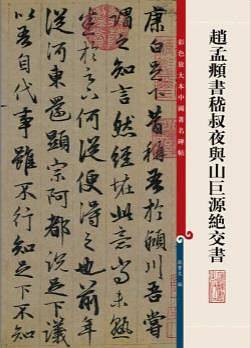 趙孟頫書嵇叔夜與山巨源絶交書
彩色放大本中國著名碑帖
康白足下昔稱吾於潁川吾嘗
謂之知言然經怪此意尚未熟
悉於足下何從便得之也前年
從河東還顯宗阿都說足下議
以吾自代事雖不行知足下不